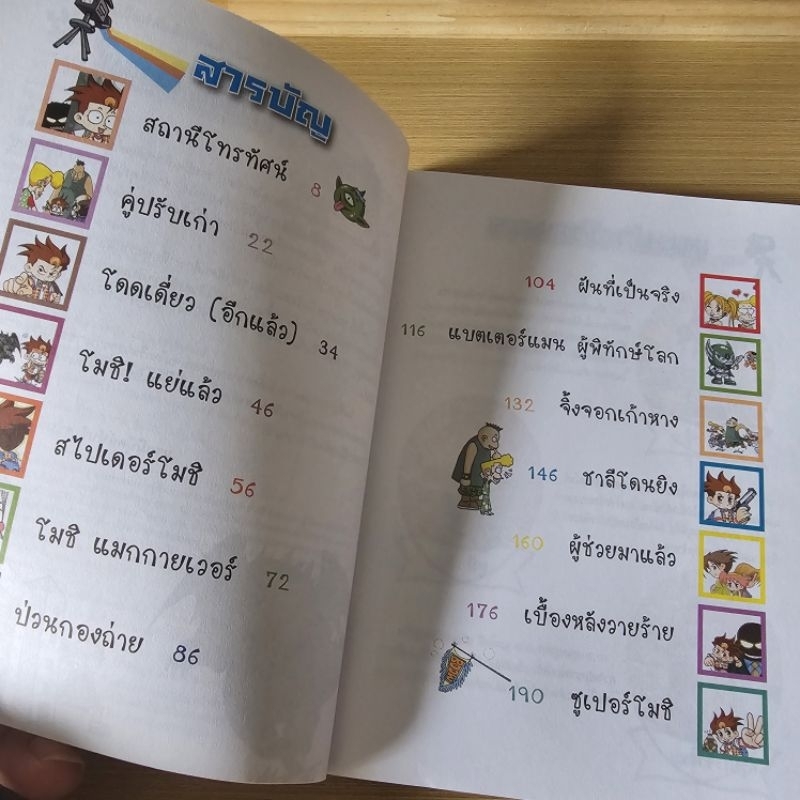 สารบัญ
สถานีโทรทัศน์ 8
คู่ปรับเก่า 22
โดดเดี่ยว (อีกแล้ว) 34
โมชิ! แย่แล้ว 46
สไปเดอร์โมชิ 56
โมชิ แมกกายเวอร์ 72
ป่วนกองถ่าย 86
104 ฝันที่เป็นจริง
116 แบตเตอร์แมน ผู้พิทักษ์โลก
132 จิ้งจอกเก้าหาง
146 ชาลีโดนยิง
160 ผู้ช่วยมาแล้ว
176 เบื้องหลังวายร้าย
190 ซูเปอร์โมชิ